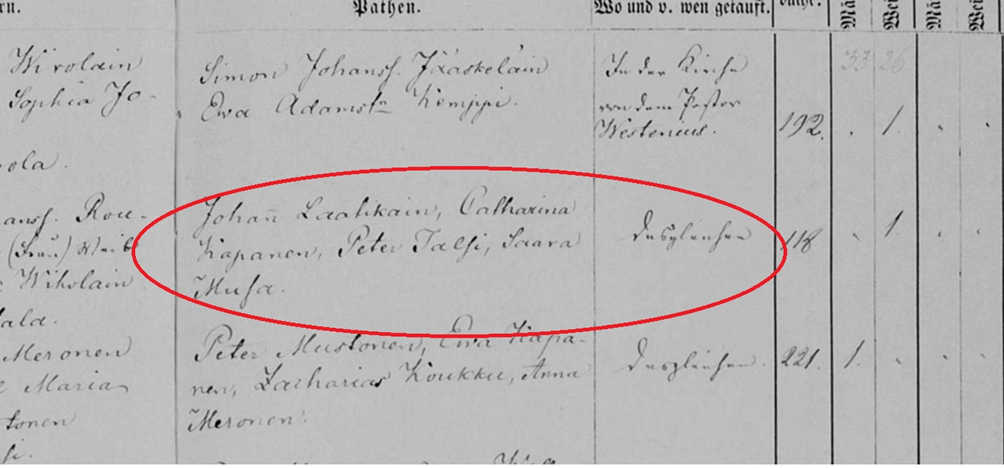 rn.
Pathen.
Wo und v. wen getauft.
Wirolain
Sophia Jo-
ola.
Simon Johanss. Jääskelain
Ewa Adamstr Kemppi.
In der Kirche
von dem Pastor
Westenius.
192. . 1. . .
33 26
anss. Rou-
(Frau) Weib
Wiholain
ald.
Johan̄ Laahkain, Catharina
Kapanen, Peter Talsi, Saara
Musa.
desgleichen
118 . 1 . .
Meronen
Maria
tonen
si.
Peter Mustonen, Ewa Kapa-
nen, Zacharias Koukku, Anna
Meronen.
desgleichen.
221. 1. . . .